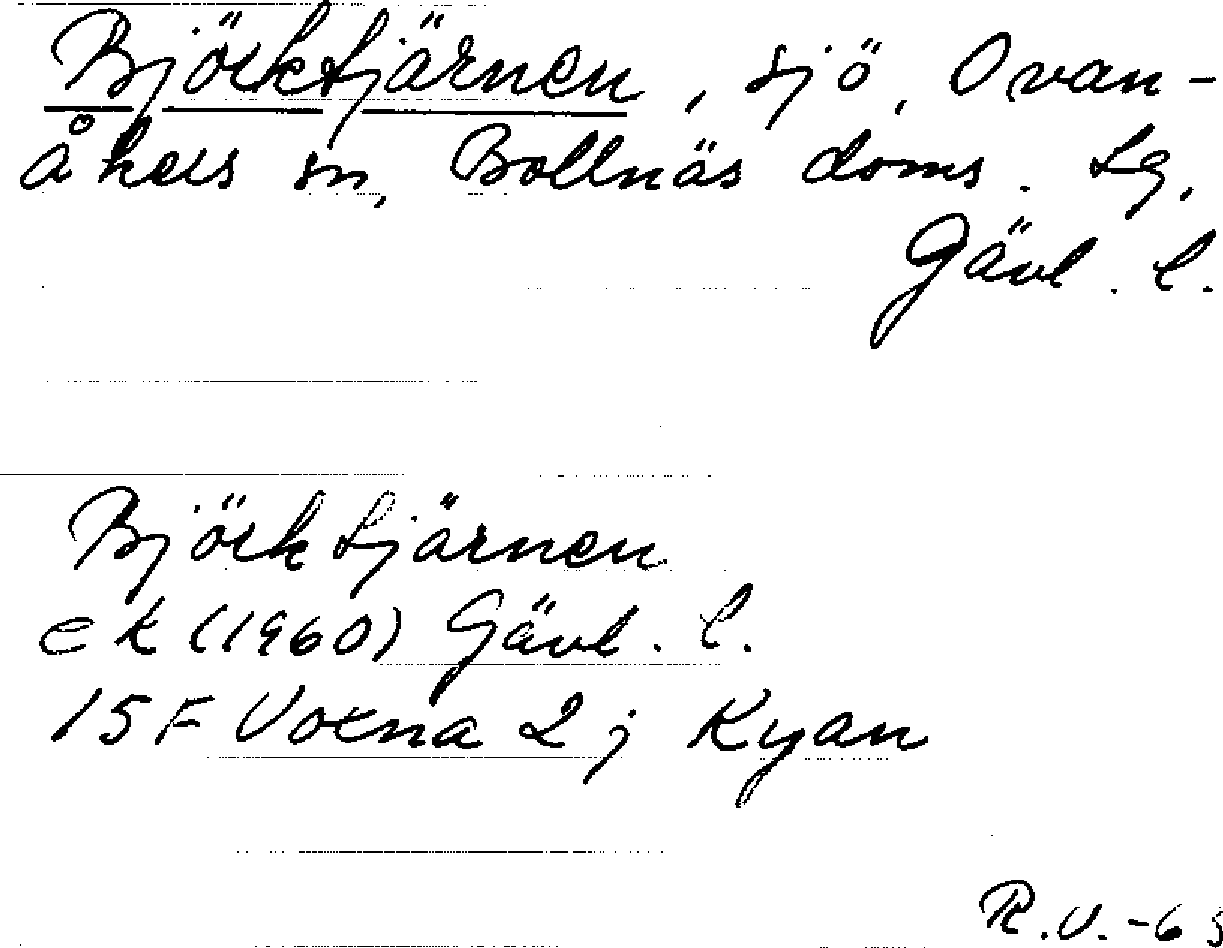 Björktjärnen, sjö, Ovan-
åkers sn, Bollnäs doms. tg,
Gävl. l.
Björktjärnen
ek (1960) Gävl. l.
15F Voxna 2j Kyan
R.V. -63